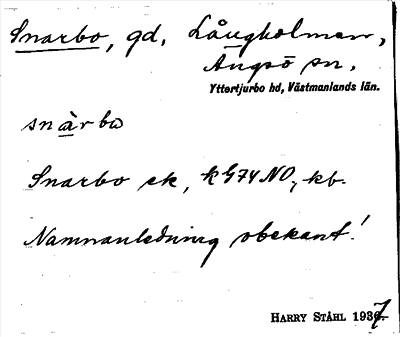 Snarbo, gd, Långholmen,
Ängsö sn,
Yttertjurbo hd, Västmanlands län.
snàrbω
Snarbo ek, kG74NO, kb.
Namnanledning obekant!
HARRY STÅHL 1937